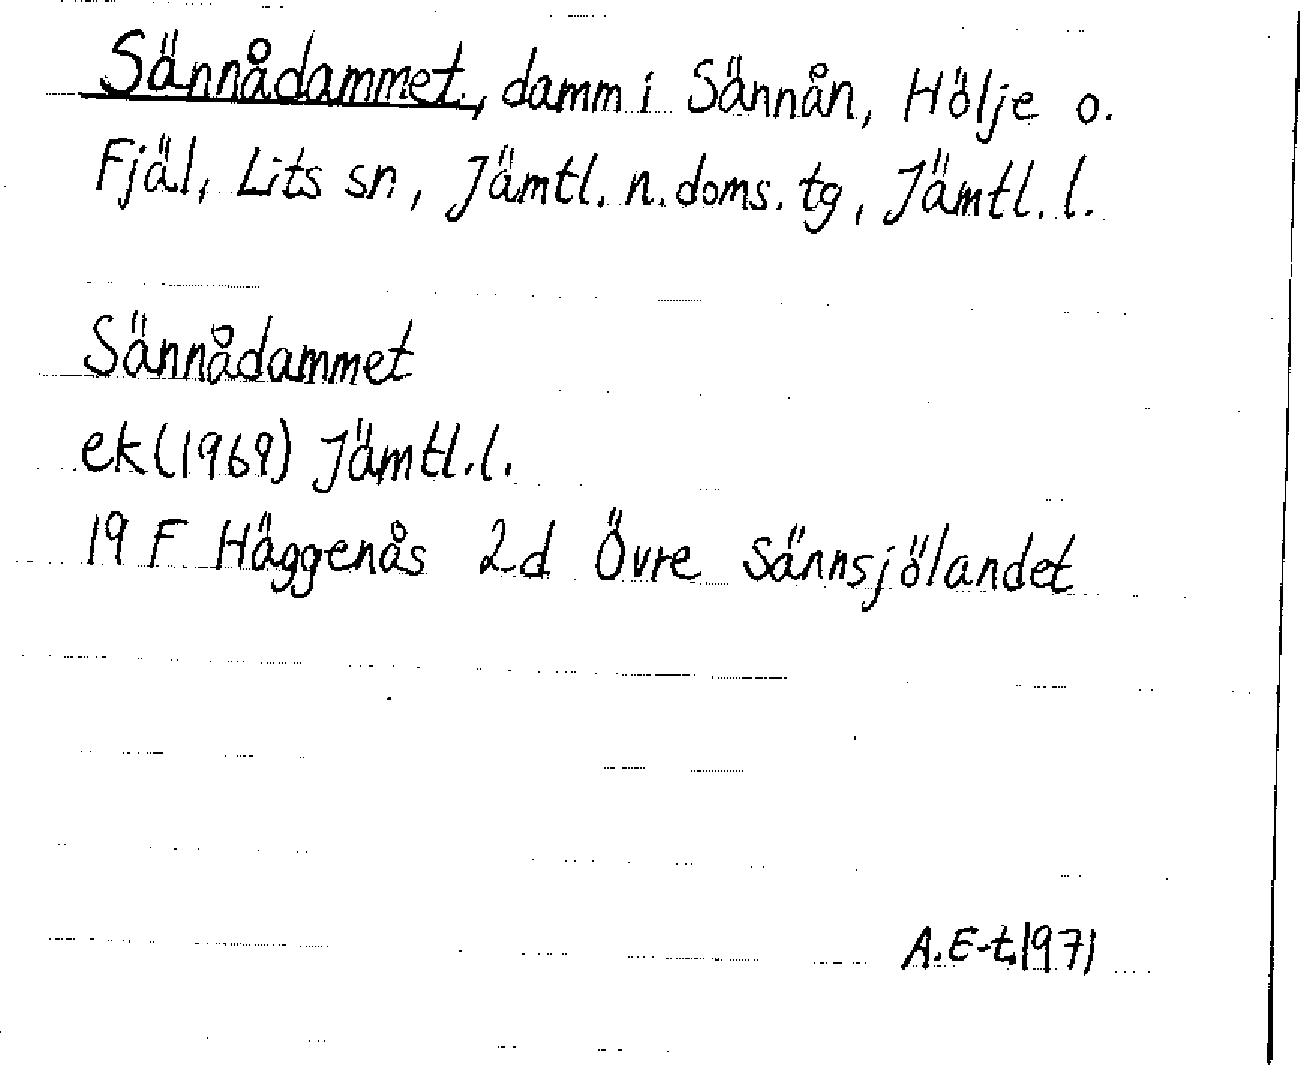 Sännådammet, damm i Sännån, Hölje o.
Fjäl, Lits sn, Jämtl. n. doms. tg, Jämtl. l.
Sännådammet
ek (1969) Jämtl. l.
19 F Häggenås 2d Övre Sännsjölandet
A. E-t. 1971